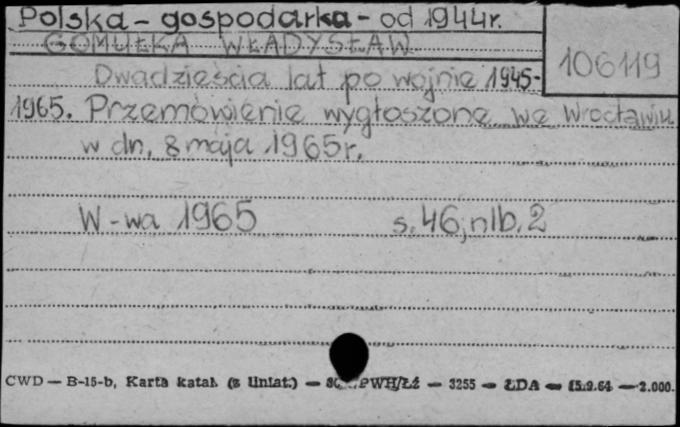 Polska - gospodarka - od 1944r.
GOMUŁKA WŁADYSŁAW
106119
Dwadzieścia lat po wojnie 1945-
1965. Przemówienie wygłoszone we Wrocławiu
w dn. 8 maja 1965r.
W-wa 1965 s. 46, nlb. 2
CWD — B-15-b, Karta katal. (z liniat.) — PWH/Łź — 3255 — ŁDA — 15.9.64 — 2.000.